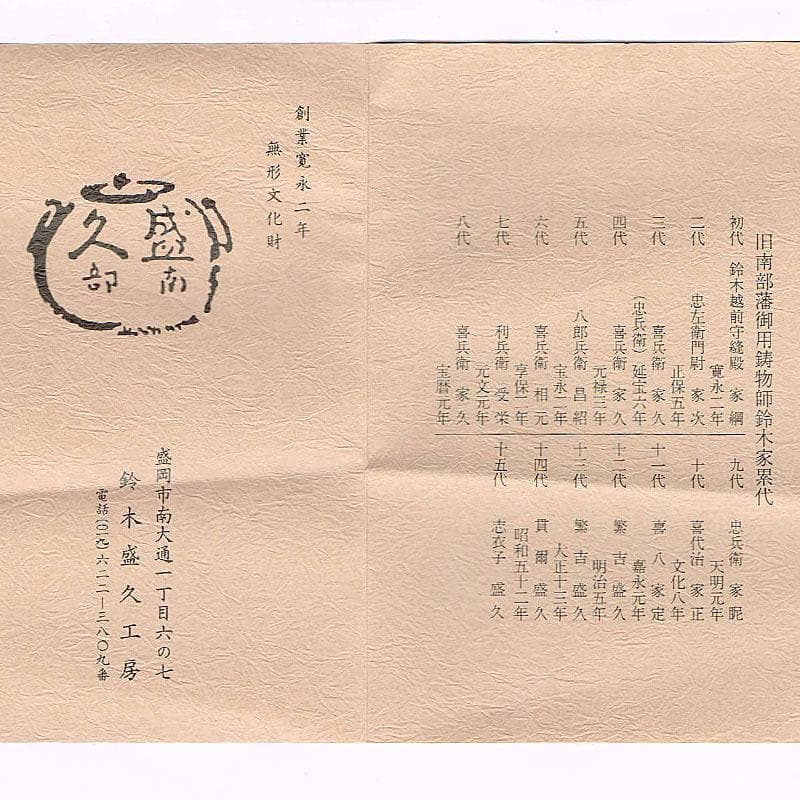 旧南部藩御用鋳物師鈴木家累代
初代 鈴木越前守縫殿 家綱
寛永二年
二代 忠左衛門尉 家次
正保五年
三代 喜兵衛 家久
(忠兵衛) 延宝六年
四代 喜兵衛 家久
元禄三年
五代 八郎兵衛 昌紹
宝永二年
六代 喜兵衛 相元
享保二年
七代 利兵衛 受栄
元文元年
八代 喜兵衛 家久
宝暦元年
九代 忠兵衛 家眤
天明元年
十代 喜代治 家正
文化八年
十一代 喜八 家定
嘉永元年
十二代 繁吉 盛久
明治五年
十三代 繁吉 盛久
大正十三年
十四代 貫爾 盛久
昭和五十二年
十五代 志衣子 盛久
創業寛永二年
無形文化財
盛久
南部
盛岡市南大通一丁目六の七
鈴木盛久工房
電話(〇一九)六二二―三八〇九番